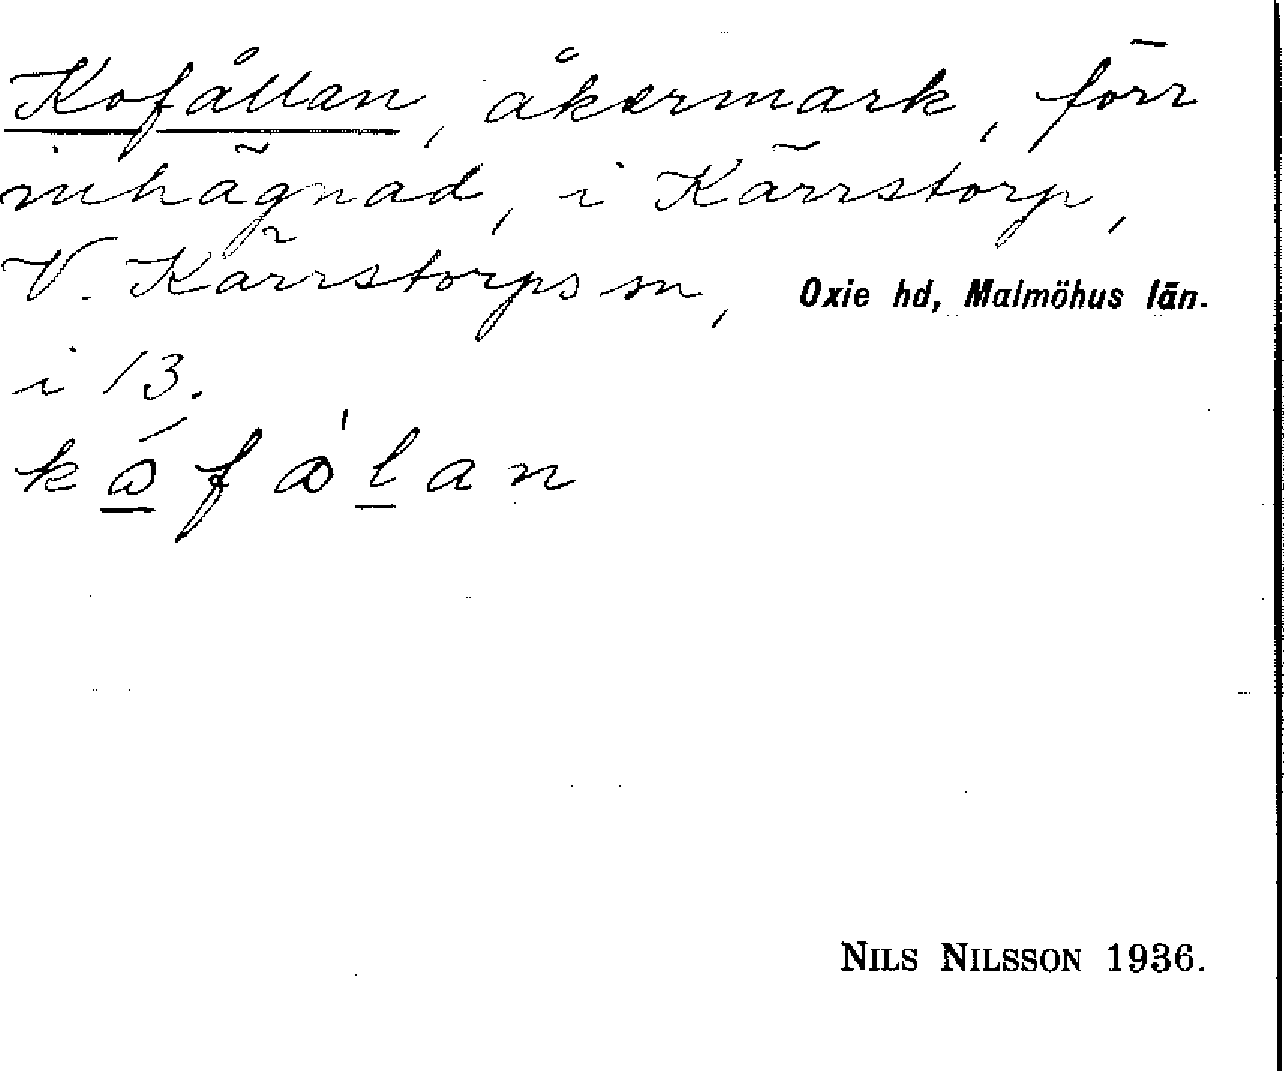 Kofållan, åkermark, förr
inhägnad, i Kärrstorp,
V. Kärrstorps sn, Oxie hd, Malmöhus län.
i 13.
NILS NILSSON 1936.